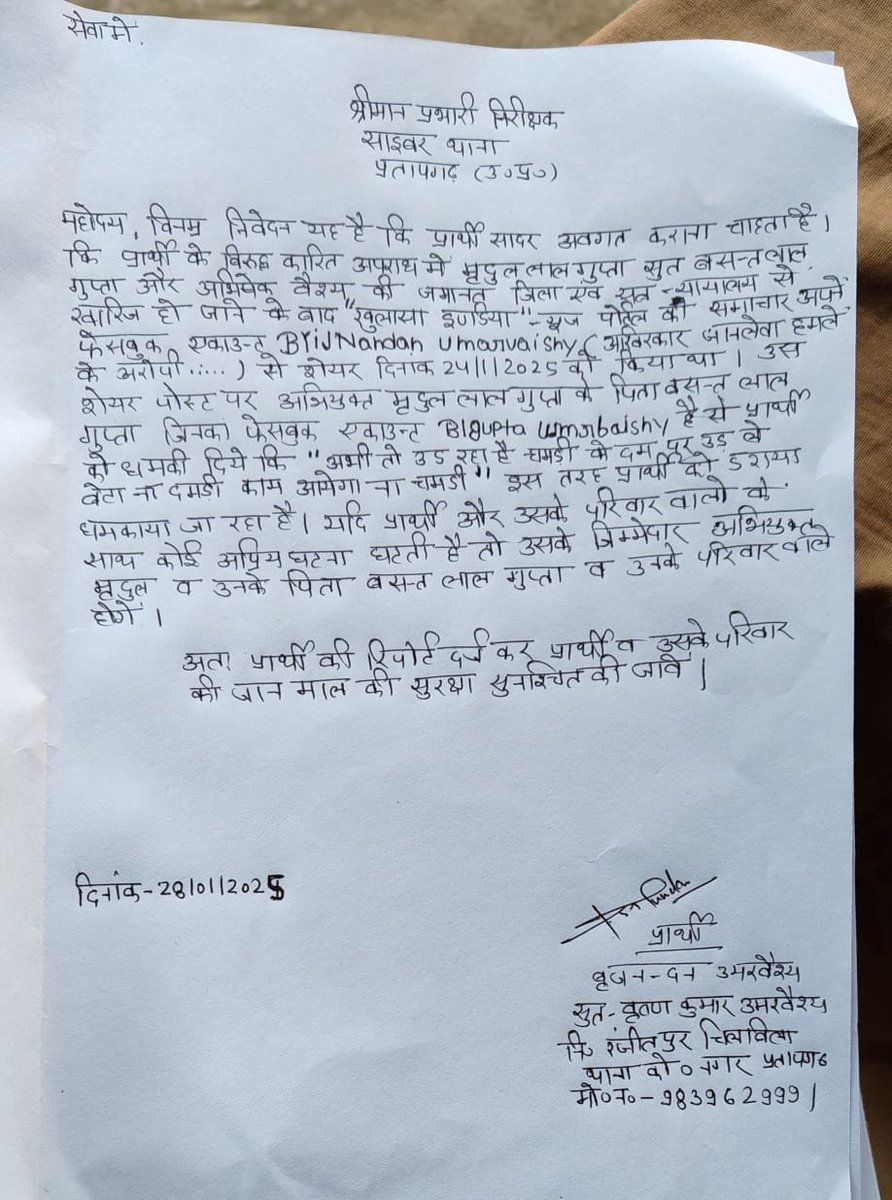 सेवा में.
श्रीमान प्रभारी निरीक्षक
साइबर थाना
प्रतापगढ़ (उ०प्र०)
महोदय, विनम्र निवेदन यह है कि प्रार्थी सादर अवगत कराना चाहता है।
कि प्रार्थी के विरुद्ध कारित अपराध मे मृदुल लाल गुप्ता सुत बसन्त लाल
गुप्ता और अभिषेक वैश्य की जमानत जिला एवं सत्र न्यायालय से
खारिज हो जाने के बाद "खुलासा इण्डिया" न्यूज पोर्टल की समाचार अपने
फेसबुक एकाउन्ट BrijNandan Umarvaishy (आखिरकार जानलेवा हमले
के आरोपी.....) से शेयर दिनाक 24/1/2025 को किया था। उस
शेयर पोस्ट पर अभियुक्त मृदुल लाल गुप्ता के पिता बसन्त लाल
गुप्ता जिनका फेसबुक एकाउन्ट Blgupta Umarbaishy है से प्रार्थी
को धमकी दिये कि "अभी तो उड रहा है चमडी के दम पर उड ले
बेटा ना दमडी काम आयेगा ना चमडी" इस तरह प्रार्थी को डराया
धमकाया जा रहा है। यदि प्रार्थी और उसके परिवार वालो के
साथ कोई अप्रिय घटना घटती है तो उसके जिम्मेदार अभियुक्त
मृदुल व उनके पिता बसन्त लाल गुप्ता व उनके परिवार वाले
होगें।
अतः प्रार्थी की रिपोर्ट दर्ज कर प्रार्थी व उसके परिवार
की जान माल की सुरक्षा सुनश्चित की जावे।
दिनांक-28/01/2025
प्रार्थी
बृजनन्दन उमरवैश्य
सुत- कृष्ण कुमार उमरवैश्य
नि० रंजीतपुर चिलबिला
थाना को० नगर प्रतापगढ
मो०न०- ९839६2९९९।